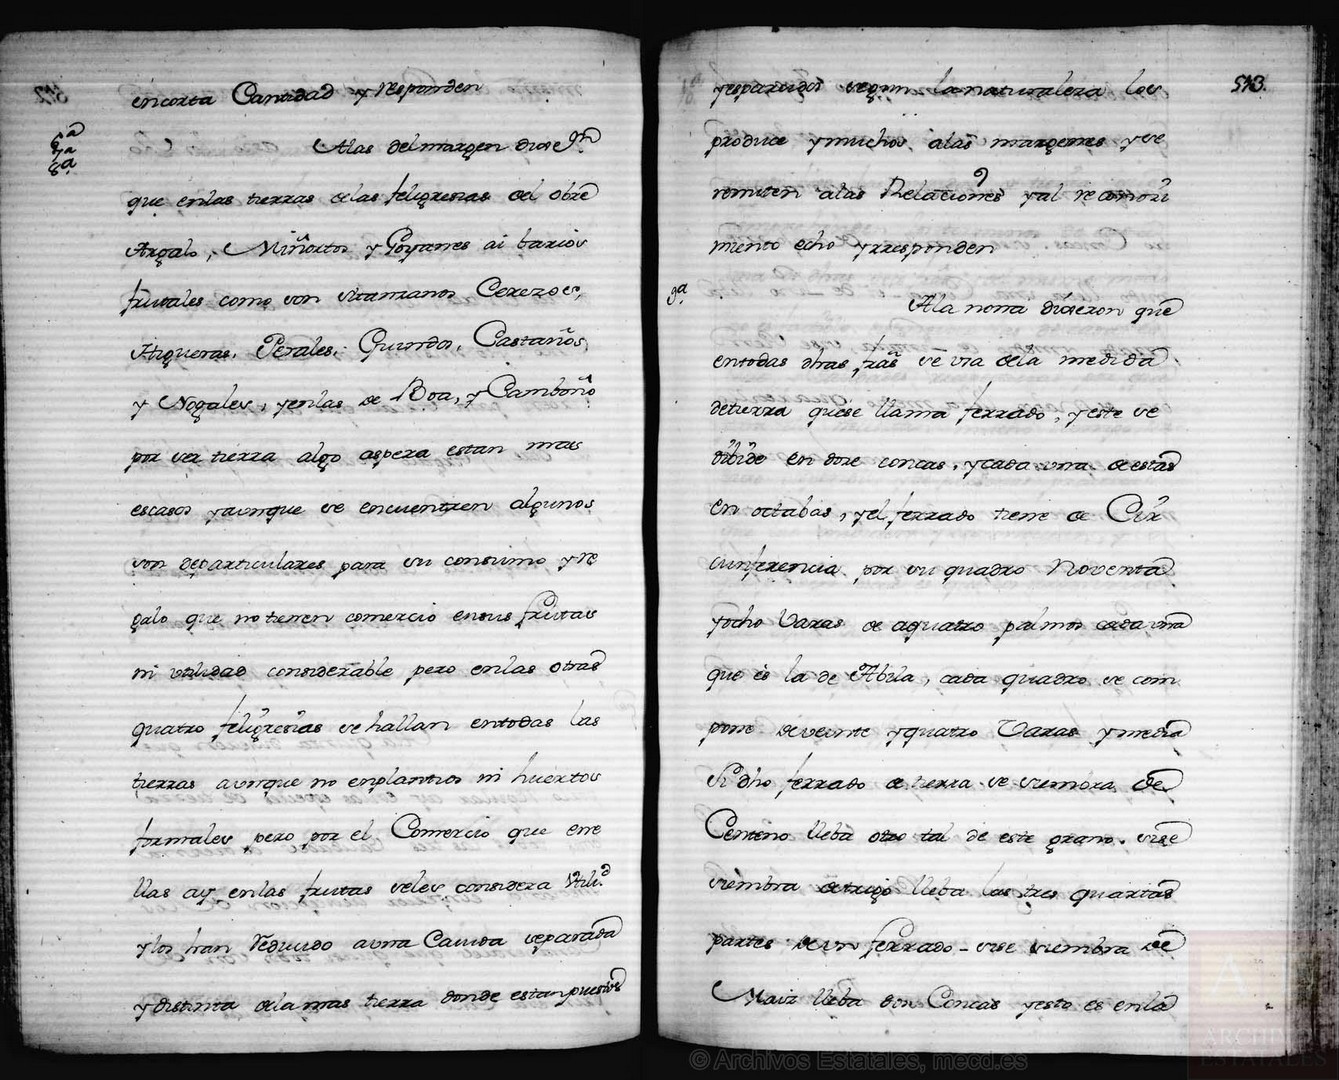 en corta Cantidad y responden
6ª
7ª
8ª
Alas del margen dixeron
que enlas tierras delas feligresias del obre
Argalo, Miñortos y Goyanes ai barios
frutales como son abitanianos Cerezos,
Higueras, Perales, Guindos, Castaños,
y Nogales, yenlas de Boa, y Camboño
por ser tierra algo aspera estan mas
escasos yaunque se encuentren algunos
son departiculares para su consumo yre
galo que notienen comercio ensus frutas
ni utilidad considerable pero enlas otras
quatro feligresias se hallan entodas las
tierras aunque no enplantios ni huertos
formales pero por el Comercio que en e
llas ay enlas frutas seles considera Utilid
ylos han Reducido auna Casuda separada
y distinta dela mas tierra donde estan puestos
513.
yesparcidos segun lanaturaleza los
produce ymuchos alas margenes yse
remiten alas Relaciones yal reconozi
miento echo yresponden
9ª
Ala nona dixeron que
entodas dhas trras se usa dela medida
detierra quese llama ferrado, yeste se
dibide en doze concas, ycada una deestas
en octabas, yel ferrado tiene de Cir
cunferencia por su quadro Noventa
yocho Varas de aquatro palmos cada una
que és la de Abila, cada quadro se com
pone deveinte yquatro Varas ymedia
Si dho ferrado de tierra se siembra de
Centeno lleba otro tal de este grano, sise
siembra detrigo lleba las tres quartas
partes deun ferrado - sise siembra de
Maiz lleba dos Concas yesto es enla
© Archivos Estatales, mecd.es
ARCHIVOS
ESTATALES